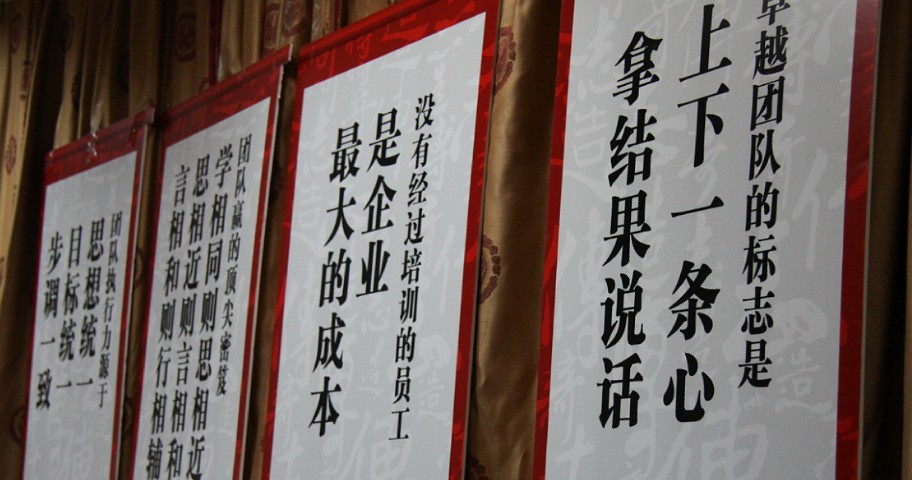 卓越团队的标志是
上下一条心
拿结果说话
没有经过培训的员工
是企业
最大的成本
团队赢的顶尖密笈
学相同则思相近
思相近则言相和
言相和则行相辅
团队执行力源于
思想统一
目标统一
步调一致